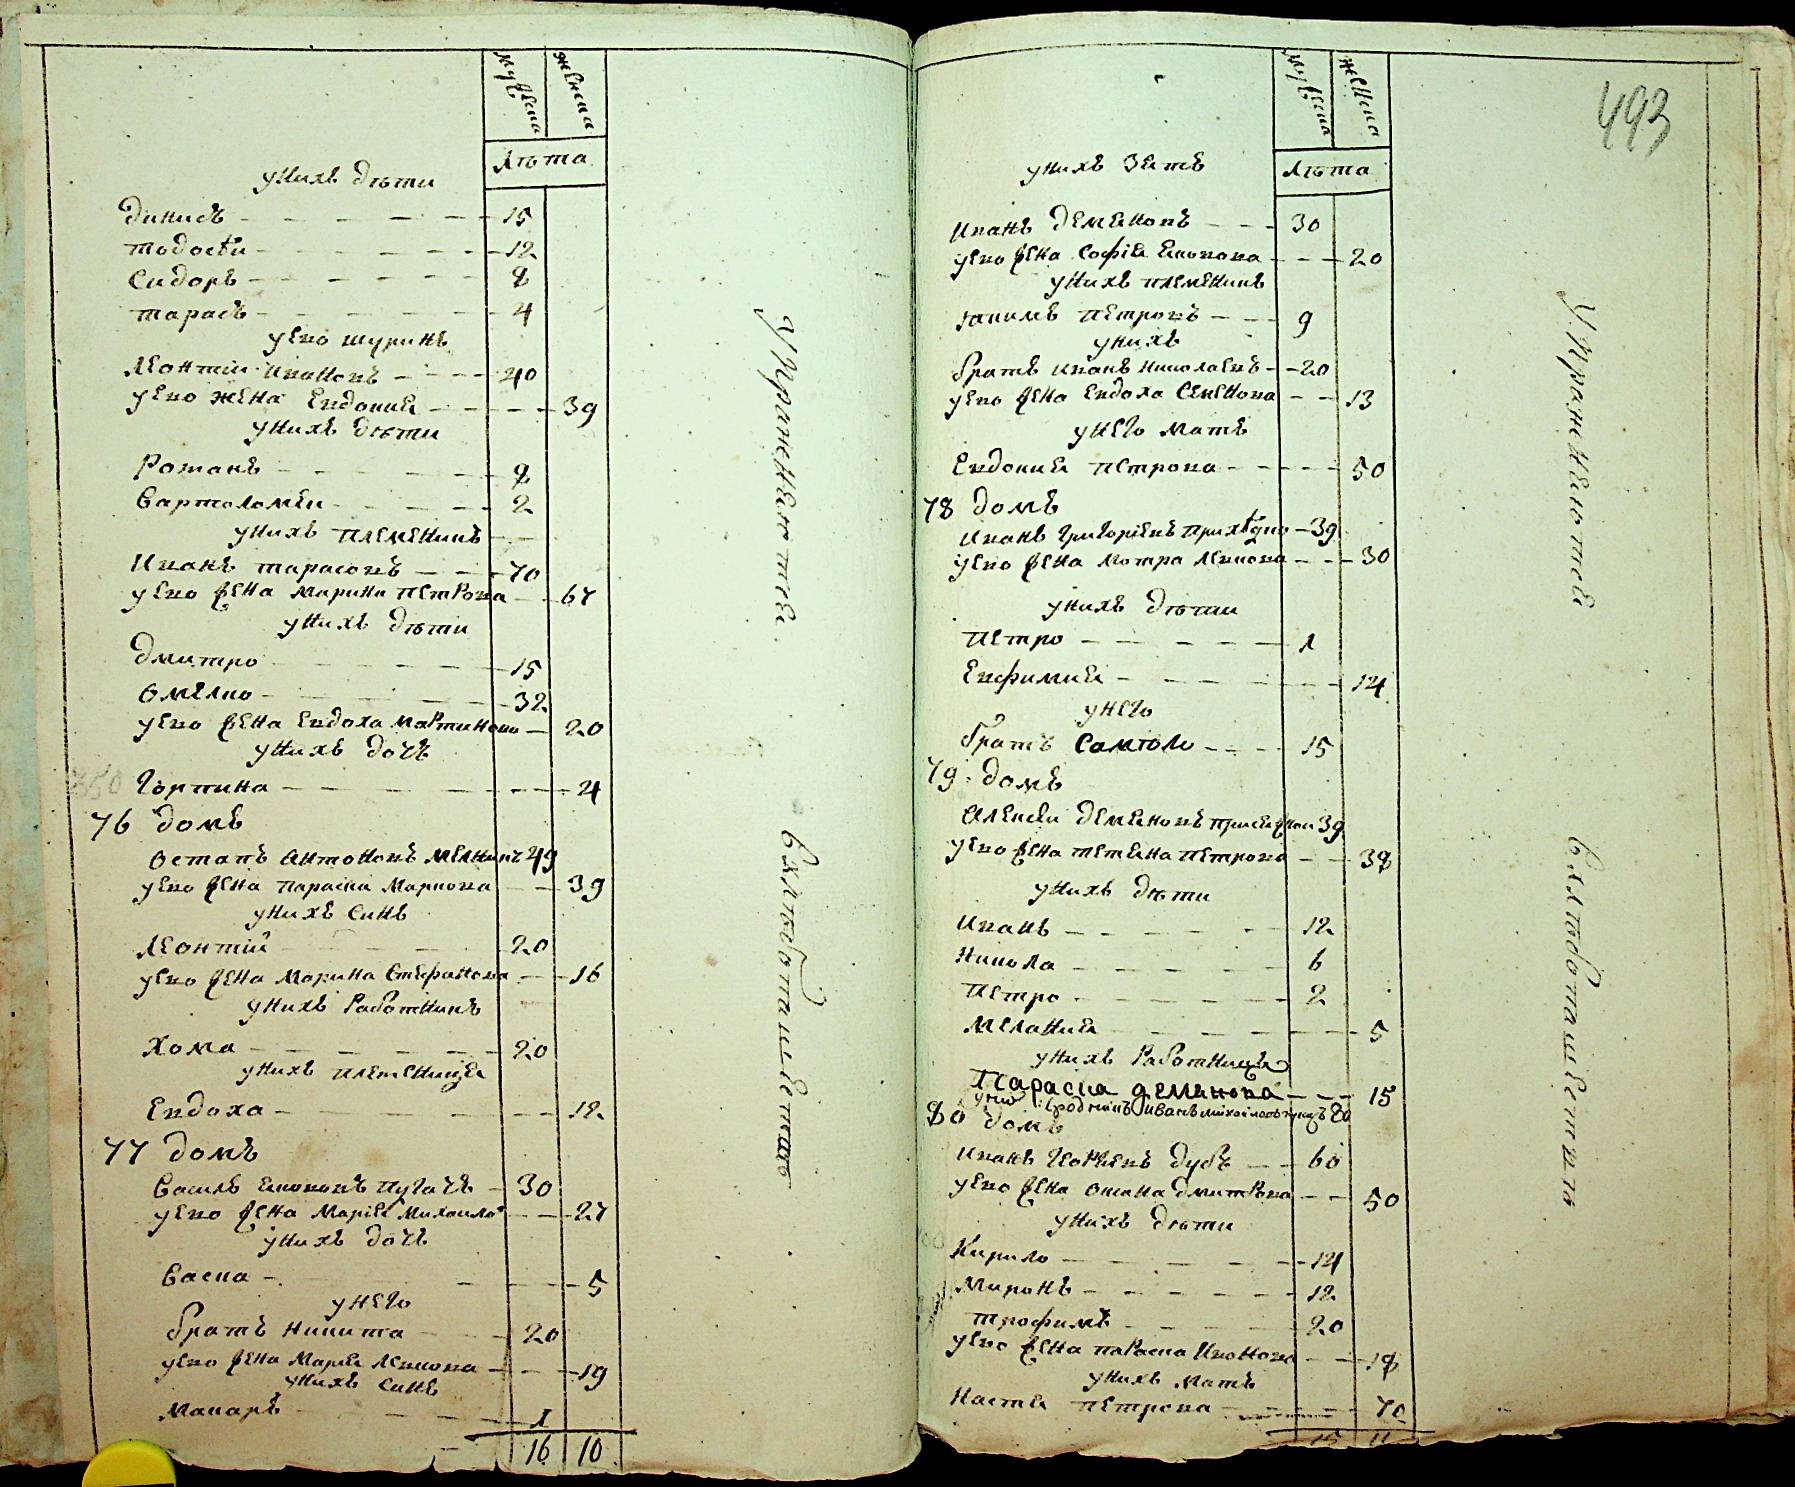 мужеска женска
лѣта
уних дѣти
динисъ 15
тодосѣи 12
Сидоръ 8
тарасъ 4
уево шуринъ
леонтіи ивановъ 40
уево жена Евдокиꙗ 39
унихъ дѣти
Романъ 8
вартоломѣи 2
унихъ племеникъ
Иванъ тарасовъ 70
уево жена марина петрова 67
унихъ дѣти
дмитро 15
омелко 32
уево жена Евдоха мартинова 20
унихъ дочъ
350 Горпина 4
76 домъ
остапъ антоновъ мелникъ 49
уево жена параска маркова 39
унихъ синъ
леонтіи 20
уево жена марина стефанова 16
унихъ работникъ
хома 20
унихъ племеницꙗ
Евдоха 12
77 домъ
василь Ꙗкововъ пугачъ 30
уево жена мариꙗ михаило 27
унихъ дочъ
васка 5
унего
братъ никита 20
уево жена мариꙗ левкова 19
унихъ синъ
макаръ 1
16 10
упражнѣютсꙗ
вхлѣботашествѣ
493
мужеска женска
лѣта
унихъ зꙗтъ
иванъ демꙗновъ 30
уево жена софіꙗ Ꙗковова 20
унихъ племеникъ
ꙗкимъ петровъ 9
унихъ
братъ иванъ николаевъ 20
уево жена Евдоха семенова 13
унего мать
Евдокиꙗ петрова 50
78 домъ
иванъ григориевъ прихѣдко 39
уево жена мотра левкова 30
унихъ дѣти
петро 1
Евфимиꙗ 14
унего
братъ самоило 15
79 домъ
алексѣи демꙗновъ присꙗжнои 39
уево жена тетꙗна петрова 38
унихъ дѣти
иванъ 12
никола 6
петро 2
меланиꙗ 5
унихъ работницꙗ
Параска демꙗнова 15
унихъ сродникъ иванъ михаиловъ 20
80 домъ
иванъ Георгиевъ дубъ 60
уево жена оксана дмитрова 50
унихъ дѣти
Кирило 14
миронъ 12
трофимъ 20
уево жена параска иванова 18
унихъ мать
настꙗ петрова 70
15 11
упражнѣютсꙗ